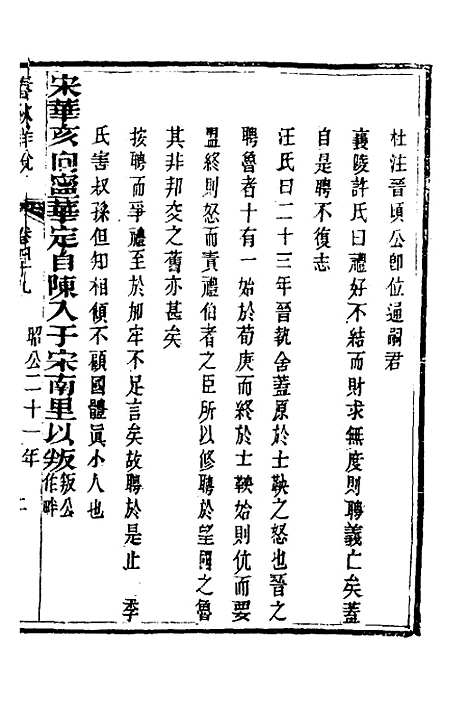 杜注晉頃公卽位通嗣君
襄陵許氏曰禮好不結而財求無度則聘義亡矣蓋
自是聘不復志
汪氏曰二十三年晉執舍蓋原於士鞅之怒也晉之
聘魯者十有一始於荀庚而終於士鞅始則伉而要
盟終則怒而責禮伯者之臣所以修聘於望國之魯
其非邦交之舊亦甚矣
按聘而爭禮至於加牢不足言矣故聘於是止 季
氏害叔孫但知相傾不顧國體眞小人也
宋華亥向寧華定自陳入于宋南里以叛叛公作畔
春秋詳說 卷四十九 昭公二十一年 二